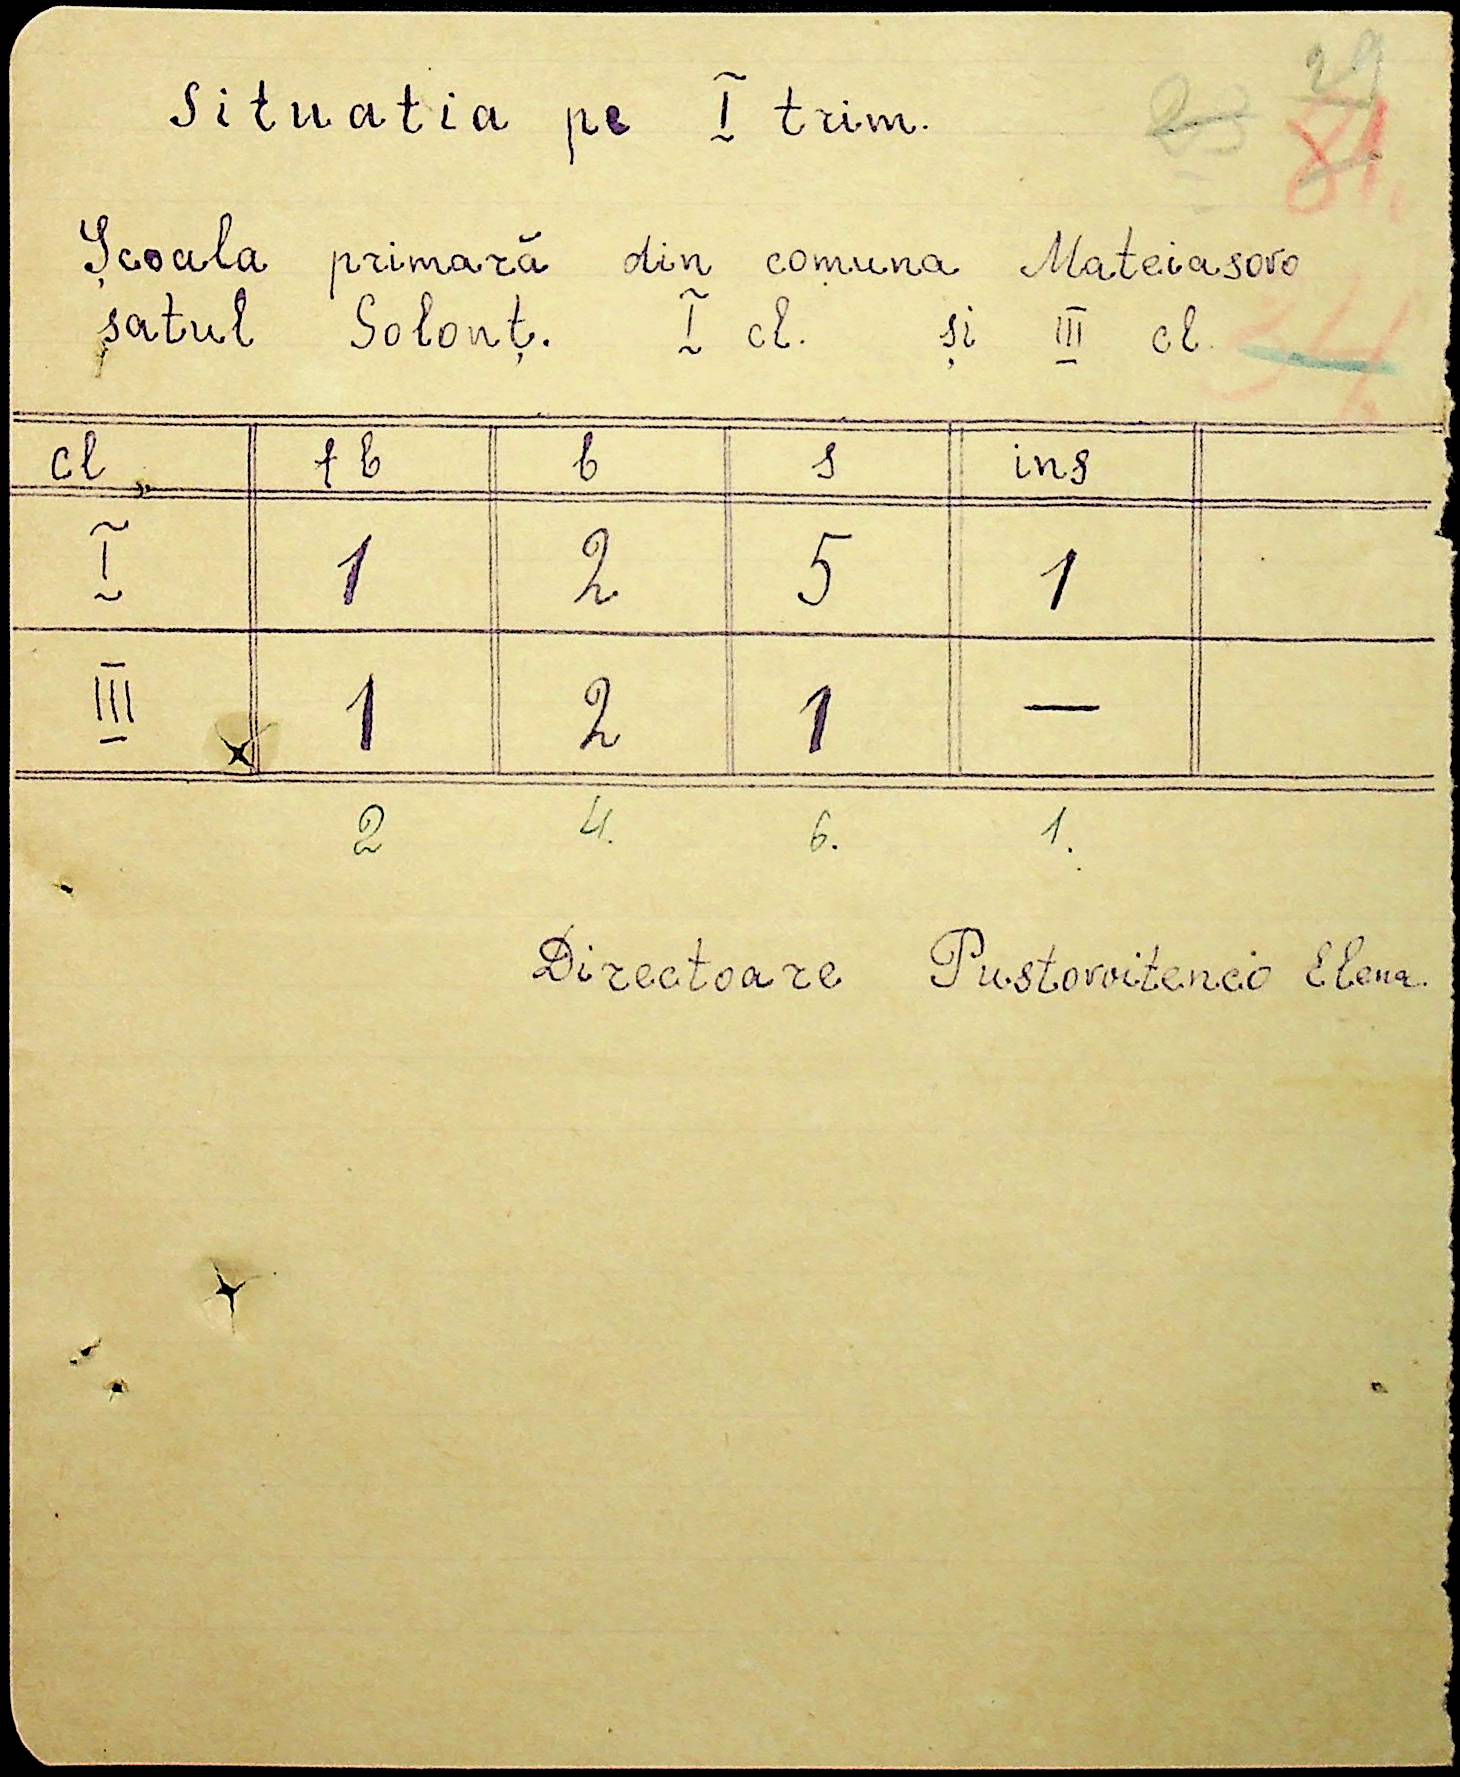 29
23 81.
Situatia pe I trim.
Școala primară din comuna Mateiasovo
satul Solonț. I cl. și III cl.
cl fb b s ins
I 1 2 5 1
III 1 2 1 —
2 4. 6. 1.
Directoare Pustovoitencio Elena.